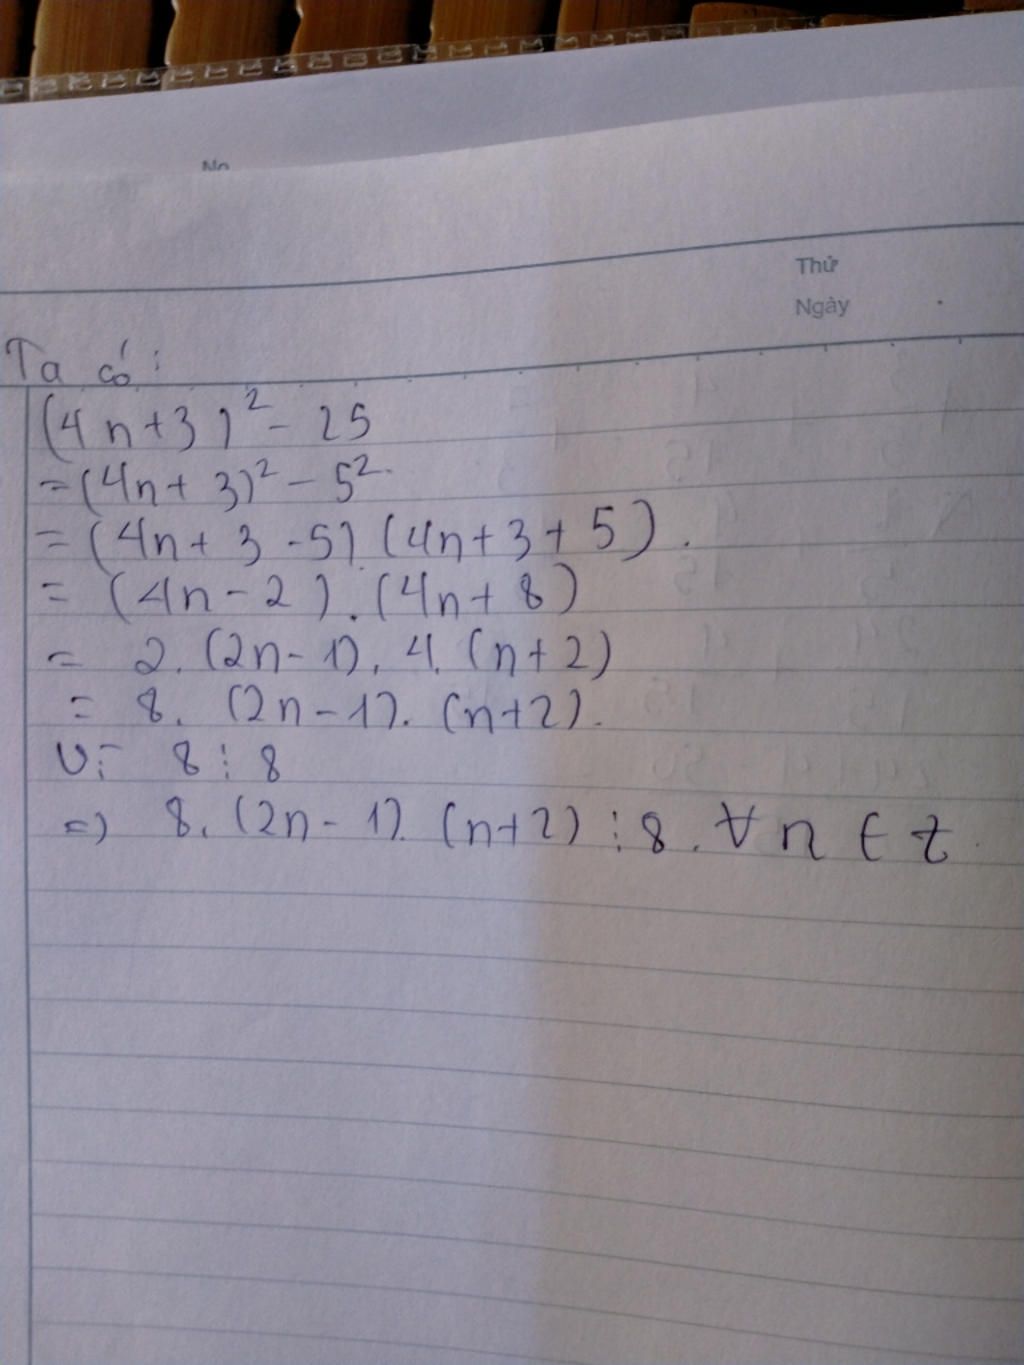 No
Thứ
Ngày
Ta có:
(4n+3)² - 25
= (4n+3)² - 5².
= (4n+3-5).(4n+3+5).
= (4n-2).(4n+8)
= 2.(2n-1).4.(n+2)
= 8.(2n-1).(n+2).
Vì 8⋮8
=> 8.(2n-1).(n+2)⋮8.∀n∈Z